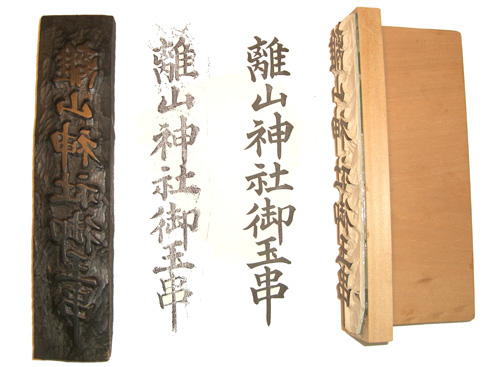 離山神社御玉串
離山神社御玉串
離山神社御玉串
離山神社御玉串